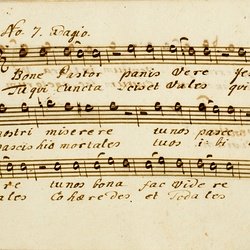 No. 7. Adagio.
Bone Pastor panis vere Je
Tu qui cuncta scis et vales qui
nostri miserere tu nos pasce
pascis hic mortales tuos i bi
re tu nos bona fac vide re
ales Cohæredes et Sodales